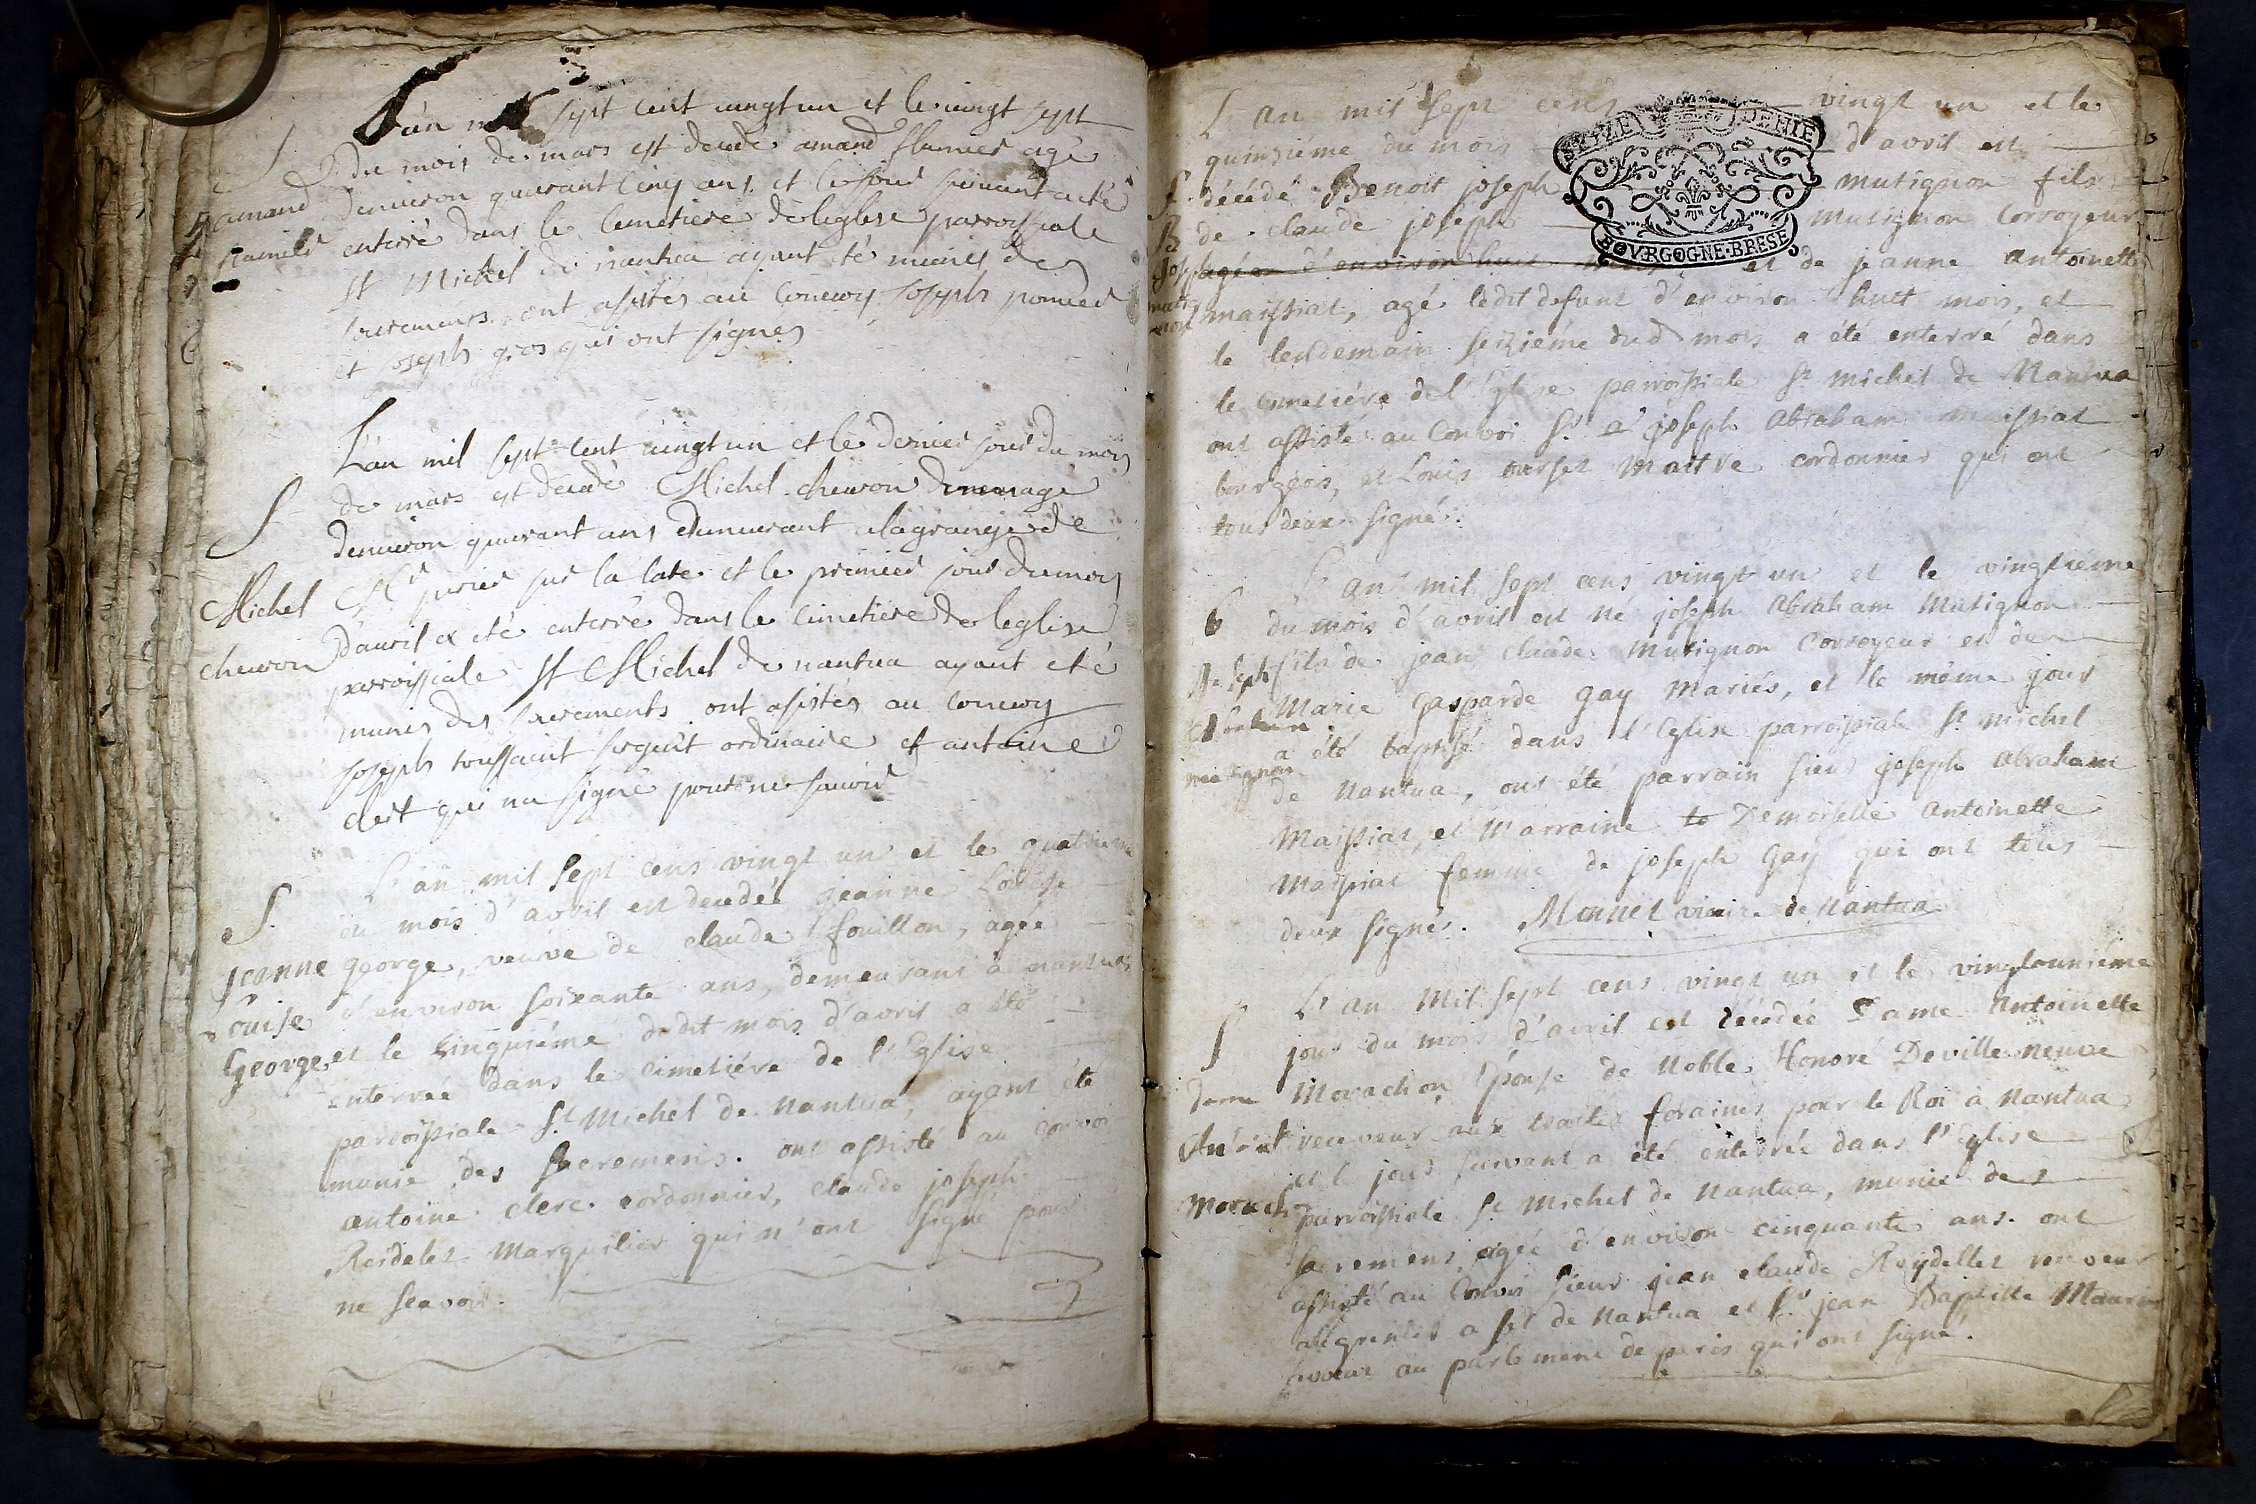 L'an mil sept cent vingt un et le vingt sept
du mois de mars est decedé amand agé
denuiron quarant cinq ans et le jour suivant a eté
enterré dans le cemetiere de leglise parroissiale
St Michel de nantua ayant eté munis des
sacrements ont assistés au convoy Joseph
et joseph gros qui ont signes
amand
L'an mil sept cent vingt un et le dernier jour du mois
de mars est decedé Michel cheuron
denuiron quarant ans demeurant a la grange de
Mr sur la late et le premier jour du mois
d'auril a eté enterré dans le cimetiere de leglise
parroissiale St Michel de nantua ayant eté
munis des sacrements ont assistés au convoy
joseph toussaint sergent ordinaire et antoine
clert qui na signé pour ne sauoir
S
Michel
cheuron
L'an mil sept cens vingt un et le quatrieme
du mois d'avril est decedée jeanne Louise
george, veuve de claude fouillon, agée
d'environ soixante ans, demeurant à nantua
et le cinquiéme dudit mois d'avril a été
enterrée dans le cimetiére de l'Eglise
parroissiale St Michel de Nantua, ayant été
munie des sacremens. ont assisté au convoi
antoine clerc cordonnier, claude joseph
Reidelet Marguilier qui n'ont signé pour
ne scavoir.
S.
jeanne
Louise
George
L'an mil sept cens vingt un et le
quinziéme du mois d'avril est
décédé Benoit joseph mutignon fils
de claude joseph mutignon Corroyeur
agé d'environ huit mois, et de jeanne antoinette
maissiat, agé ledit defunt d'environ huit mois, et
le lendemain seiziéme dud mois a été enterré dans
le cimetiére de l'Eglise parroissiale St michel de Nantua
ont assisté au Convoi Sr joseph abraham maissiat
bourgeois, et Louis ourset maitre cordonnier qui ont
tous deux signé.
S
B
Joseph
mutignon
BOVRGOGNE·BRESE
L'an mil sept cens vingt un et le vingtiéme
du mois d'avril est né joseph abraham Mutignon
fils de jean claude Mutignon Corroyeur et de
Marie Gasparde Gay mariés, et le même jour
a été baptisé dans l'Eglise parroissiale St michel
de Nantua, ont été parrain sieur joseph abraham
Maissiat, et Marraine Demoiselle antoinette
Maissiat femme de joseph Gay qui ont tous
deux signés. Monnet vicaire de Nantua
b
Joseph
abraham
mutignon
L'an mil sept cens vingt un et le vingtouniéme
jour du mois d'avril est décédée Dame Antoinette
Morachon Epouse de Noble Honoré De villeneuve
receveur aux traites foraines pour le Roi à Nantua
et le jour suivant a été enterrée dans l'Eglise
parroissiale St Michel de Nantua, munie des
sacremens, agée d'environ cinquante ans. ont
assisté au Convoi sieur jean claude Reydellet receveur
au grenier a sel de Nantua et Sr jean Baptiste
au parlement de paris qui ont signé.
S
dame
Antoinet
Morach